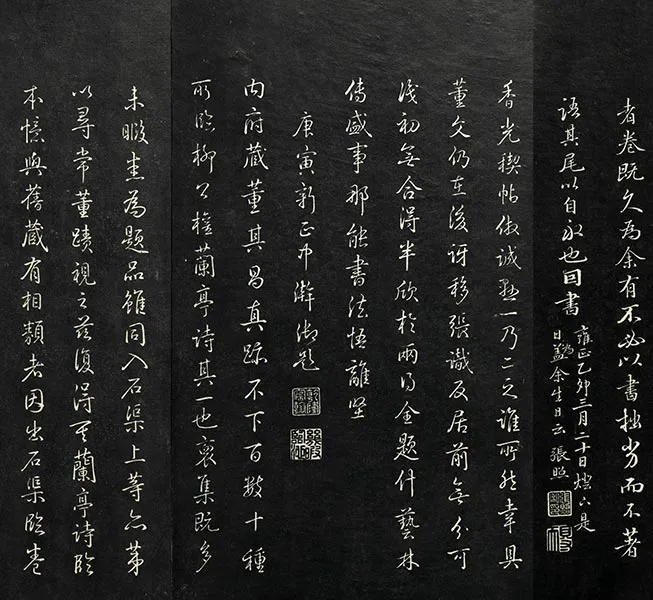 者卷既久為余有不必以書拙劣而不著
語其尾以自永也囙書
雍正乙卯三月二十日燭下是
日為余生日云 張照
香光禊帖倣誠懸一乃二之誰所然幸具
董文仍在後訝移張識及居前無分可
淺初無合得半欣於兩得全題什藝林
傳盛事那能書法悟離堅
庚寅新正中澣御題
內府藏董其昌真跡不下百數十種
所臨柳公權蘭亭詩其一也裒集既多
未暇盡為題品雖同入石渠上等亦第
以尋常董蹟視之茲復得其蘭亭詩臨
本憶與舊藏有相類者因出石渠臨卷